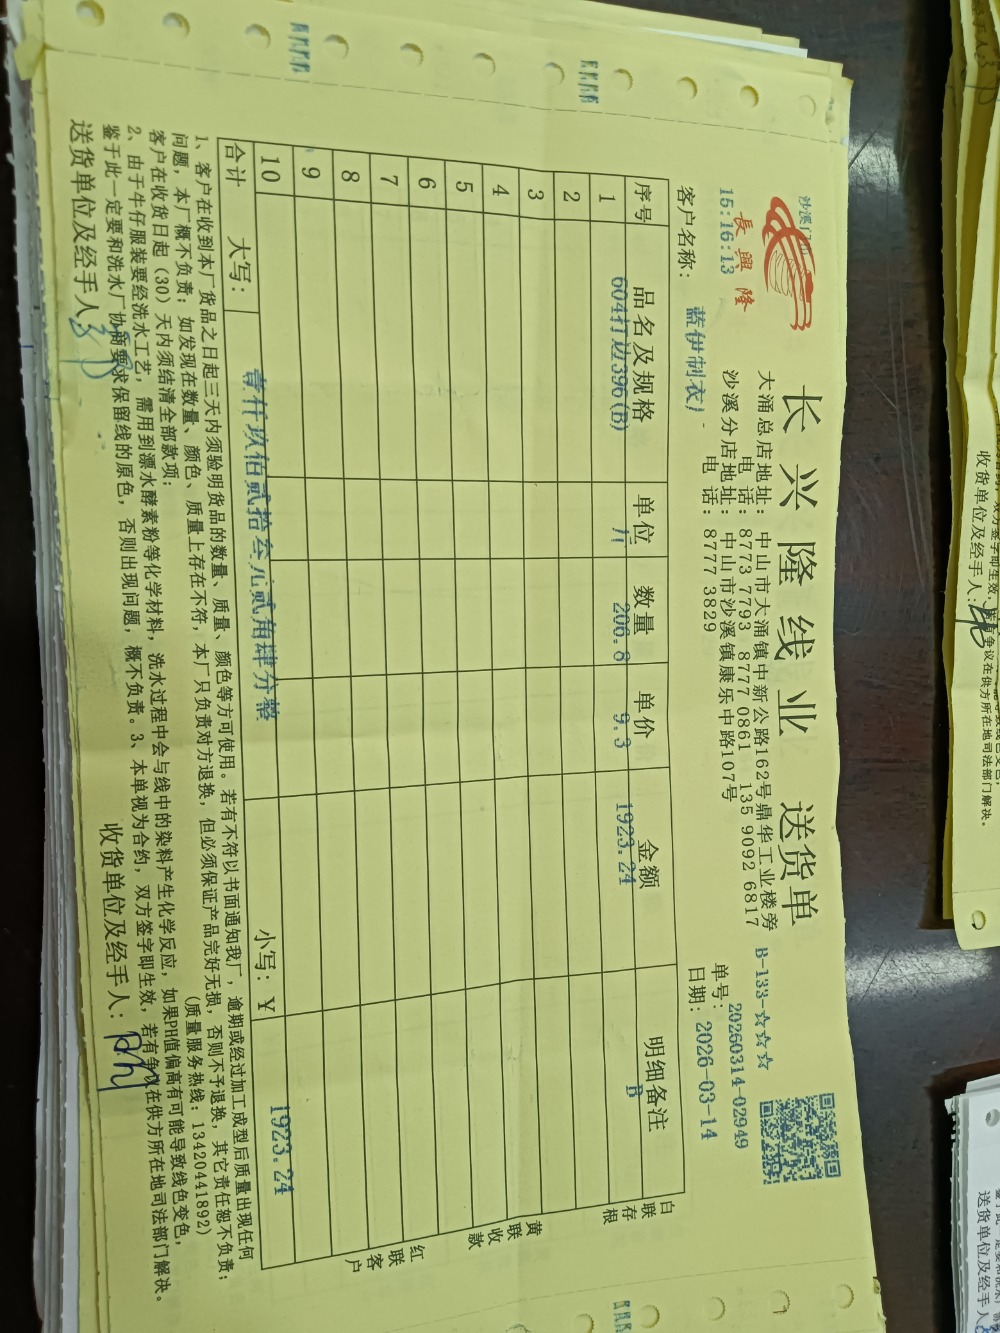 长兴隆线业 送货单
長興隆
15:16:13
大涌总店地址：中山市大涌镇中新公路162号鼎华工业楼旁
电 话：8773 7793 8777 0861 135 9092 6817
沙溪分店地址：中山市沙溪镇康乐中路107号
电 话：8777 3829
B-133-☆☆☆
单号：20260314-02949
客户名称：蓝伊制衣厂
日期：2026-03-14
序号 品名及规格 单位 数量 单价 金额 明细备注
1 604打边396(B) 斤 206.8 9.3 1923.24 B
2
3
4
5
6
7
8
9
10
合计 大写：壹仟玖佰贰拾叁元贰角肆分整 小写：￥ 1923.24
白联存根
黄联收款
红联客户
1、客户在收到本厂货品之日起三天内须验明货品的数量、质量、颜色等方可使用。若有不符以书面通知我厂，逾期或经过加工成型后质量出现任何
问题，本厂概不负责；如发现在数量、颜色、质量上存在不符，本厂只负责对方退换，但必须保证产品完好无损，否则不予退换，其它责任恕不负责；
客户在收货日起（30）天内须结清全部款项； （质量服务热线：13420441892）
2、由于牛仔服装要经洗水工艺，需用到漂水酵素粉等化学材料，洗水过程中会与线中的染料产生化学反应，如果PH值偏高有可能导致线色变色，
鉴于此一定要和洗水厂协商要求保留线的原色，否则出现问题，概不负责。3、本单视为合约，双方签字即生效，若有争议在供方所在地司法部门解决。
送货单位及经手人： 收货单位及经手人：
双方签字即生效，若有争议在供方所在地司法部门解决。
收货单位及经手人：
送货单位及经手人